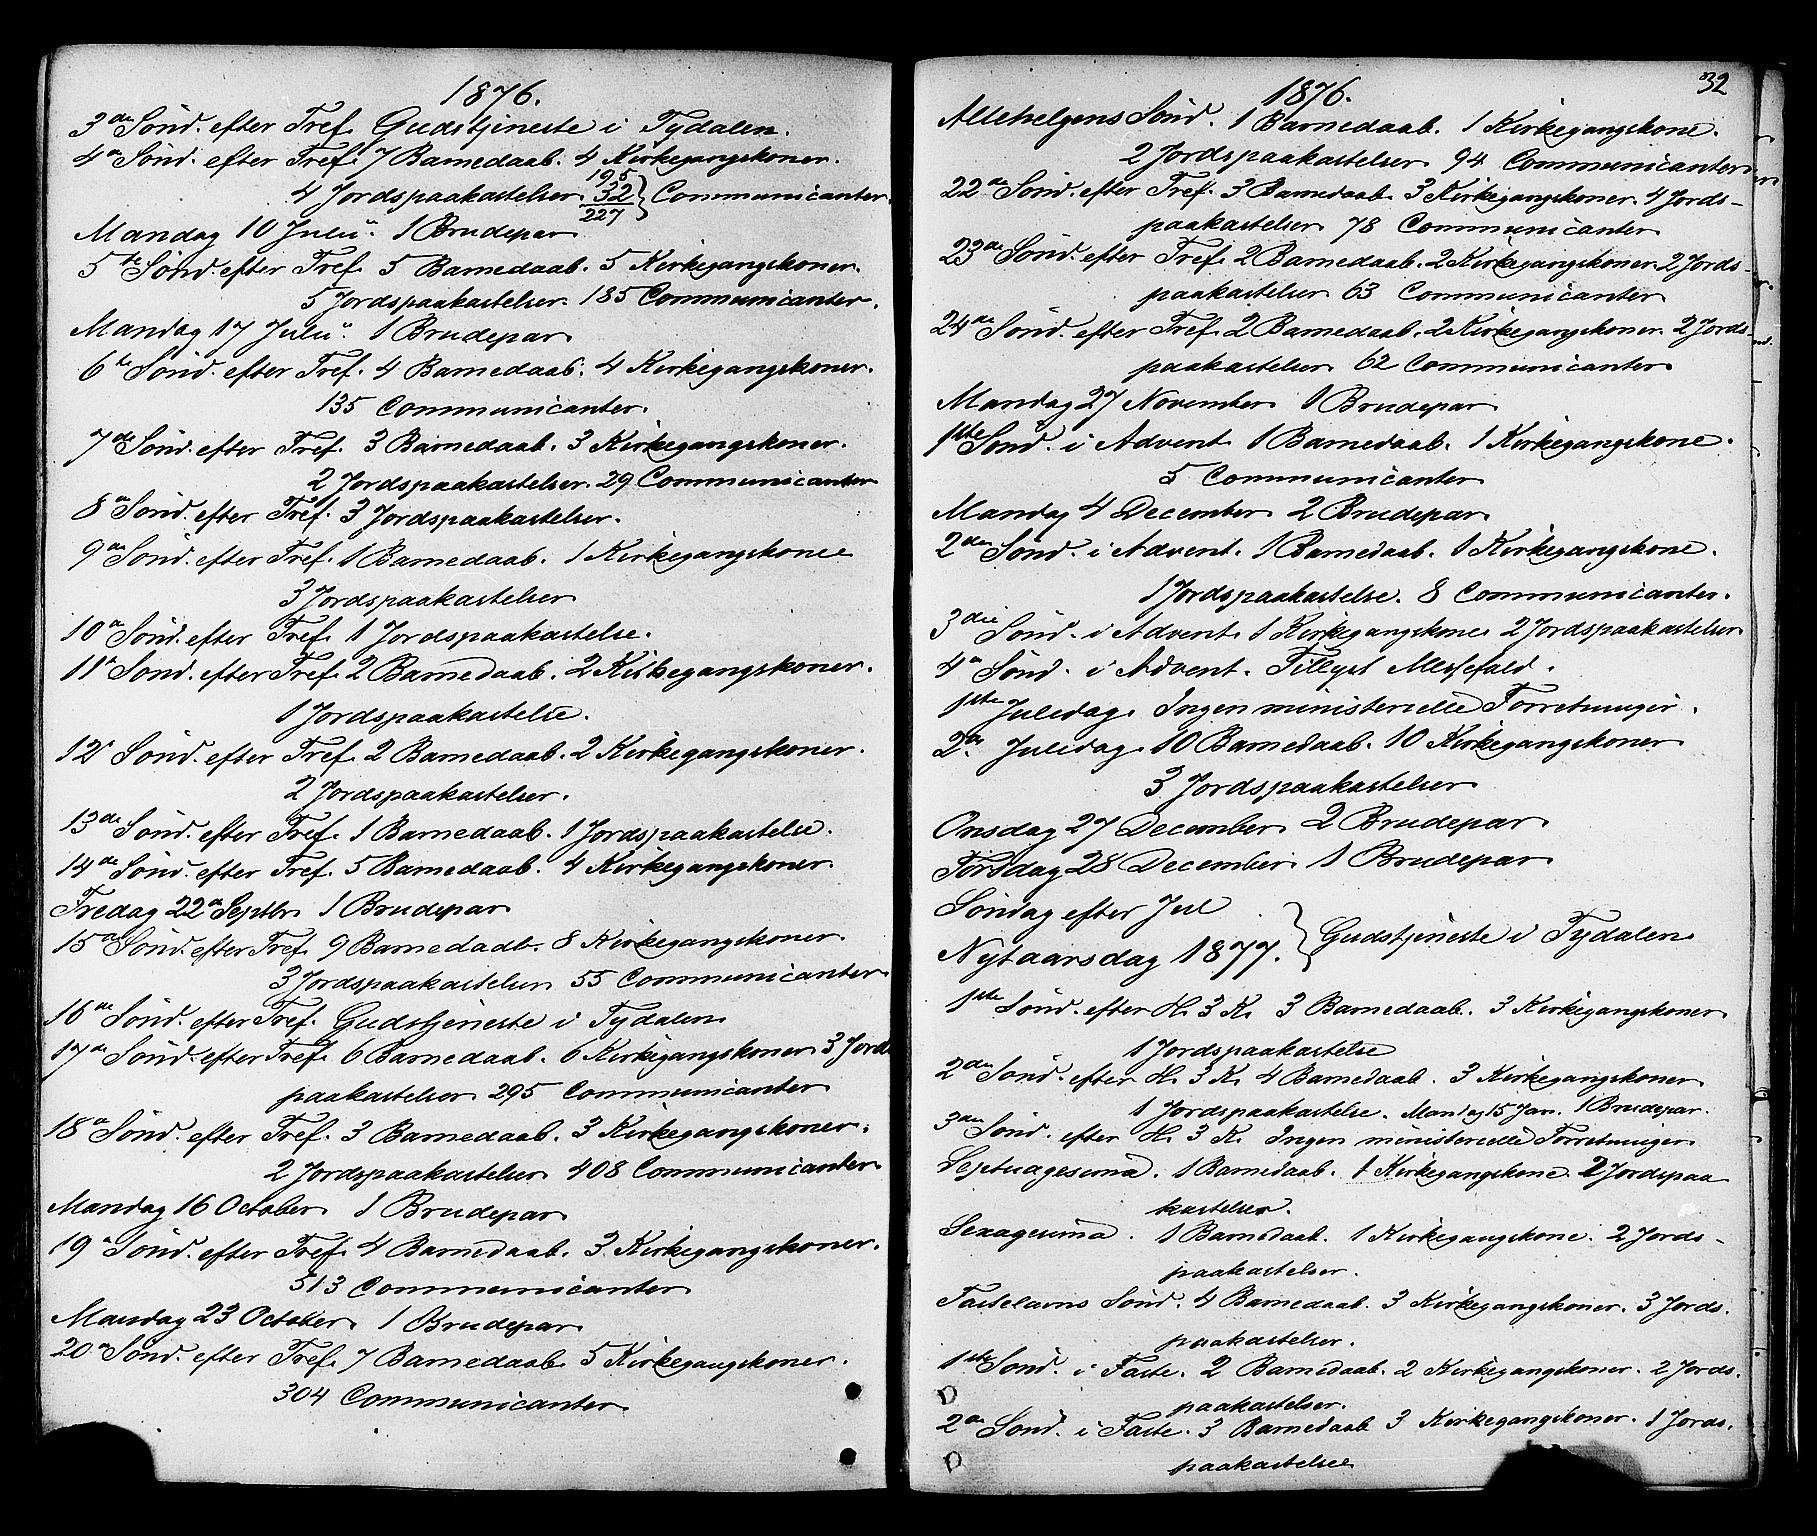 1876.
3de Sönd. efter Tref. Gudstjeneste i Tydalen.
4a Sönd. efter Tref. 7 Barnedaab. 4 Kirkegangskoner.
4 Jordspaakastelser. 195 32 227 } Communicanter.
Mandag 10 Julii. 1 Brudepar.
5te Sönd. efter Tref. 5 Barnedaab. 5 Kirkegangskoner.
5 Jordspaakastelser. 185 Communicanter.
Mandag 17 Julii. 1 Brudepar
6te Sönd. efter Tref. 4 Barnedaab. 4 Kirkegangskoner.
135 Communicanter.
7de Sönd. efter Tref. 3 Barnedaab. 3 Kirkegangskoner.
2 Jordspaakastelser. 29 Communicanter
8a Sönd. efter Tref. 3 Jordspaakastelser.
9de Sönd. efter Tref. 1 Barnedaab. 1 Kirkegangskone
3 Jordspaakastelser
10a Sönd. efter Tref. 1 Jordspaakastelse.
11a Sönd. efter Tref. 2 Barnedaab. 2 Kirkegangskoner.
1 Jordspaakastelse.
12a Sönd. efter Tref. 2 Barnedaab. 2 Kirkegangskoner.
2 Jordspaakastelser.
13de Sönd. efter Tref. 1 Barnedaab. 1 Jordspaakastelse.
14de Sönd. efter Tref. 5 Barnedaab. 4 Kirkegangskoner.
Fredag 22a Septbr. 1 Brudepar
15a Sönd. efter Tref. 9 Barnedaab. 8 Kirkegangskoner.
3 Jordspaakastelser 55 Communicanter
16de Sönd. efter Tref. Gudstjeneste i Tydalen
17de Sönd. efter Tref. 6 Barnedaab. 6 Kirkegangskoner 3 Jords
paakastelser 295 Communicanter
18a Sönd. efter Tref. 3 Barnedaab. 3 Kirkegangskoner.
2 Jordspaakastelser 408 Communicanter.
Mandag 16 October. 1 Brudepar
19a Sönd. efter Tref. 4 Barnedaab. 3 Kirkegangskoner.
513 Communicanter
Mandag 23 October. 1 Brudepar
20a Sönd. efter Tref. 7 Barnedaab 5 Kirkegangskoner.
304 Communicanter
32
1876.
Allehelgens Sönd. 1 Barnedaab. 1 Kirkegangskone.
2 Jordspaakastelser 94 Communicanter
22a Sönd. efter Tref. 3 Barnedaab 3 Kirkegangskoner. 4 Jords-
paakastelser 78 Communicanter
23de Sönd. efter Tref. 2 Barnedaab. 2 Kirkegangskoner. 2 Jords-
paakastelser 63 Communicanter
24de Sönd. efter Tref. 2 Barnedaab. 2 Kirkegangskoner. 2 Jords-
paakastelser 62 Communicanter
Mandag 27 November 1 Brudepar
1ste Sönd. i Advent 1 Barnedaab. 1 Kirkegangskone.
5 Communicanter
Mandag 4 December 2 Brudepar
2den Sönd. i Advent. 1 Barnedaab. 1 Kirkegangskone.
1 Jordspaakastelse. 8 Communicanter.
3die Sönd. i Advent 1 Kirkegangskone 2 Jordspaakastelser
4a Sönd. i Advent. Tillyst Messefald.
1ste Juledag. Ingen ministerielle Forretninger.
2a Juledag. 10 Barnedaab. 10 Kirkegangskoner
3 Jordspaakastelser
Onsdag 27 December 2 Brudepar
Torsdag 28 December 1 Brudepar
Söndag efter Jul
Nytaarsdag 1877. } Gudstjeneste i Tydalen
1ste Sönd. efter H. 3 K. 3 Barnedaab. 3 Kirkegangskoner
1 Jordspaakastelse
2den Sönd. efter H. 3 K. 4 Barnedaab. 3 Kirkegangskoner
1 Jordspaakastelse. Mandag 15 Jan. 1 Brudepar.
3die Sönd. efter H. 3 K. Ingen ministerielle Forretninger
Septuagesima. 1 Barnedaab. 1 Kirkegangskone 2 Jordspaa
kastelser.
Sexagesima. 1 Barnedaab. 1 Kirkegangskone. 2 Jords-
paakastelser.
Fastelavns Sönd. 4 Barnedaab. 3 Kirkegangskoner. 3 Jords.
paakastelser.
1ste Sönd. i Faste. 2 Barnedaab. 2 Kirkegangskoner. 2 Jords.
paakastelser.
2a Sönd. i Faste. 3 Barnedaab 3 Kirkegangskoner. 1 Jords.
paakastelse